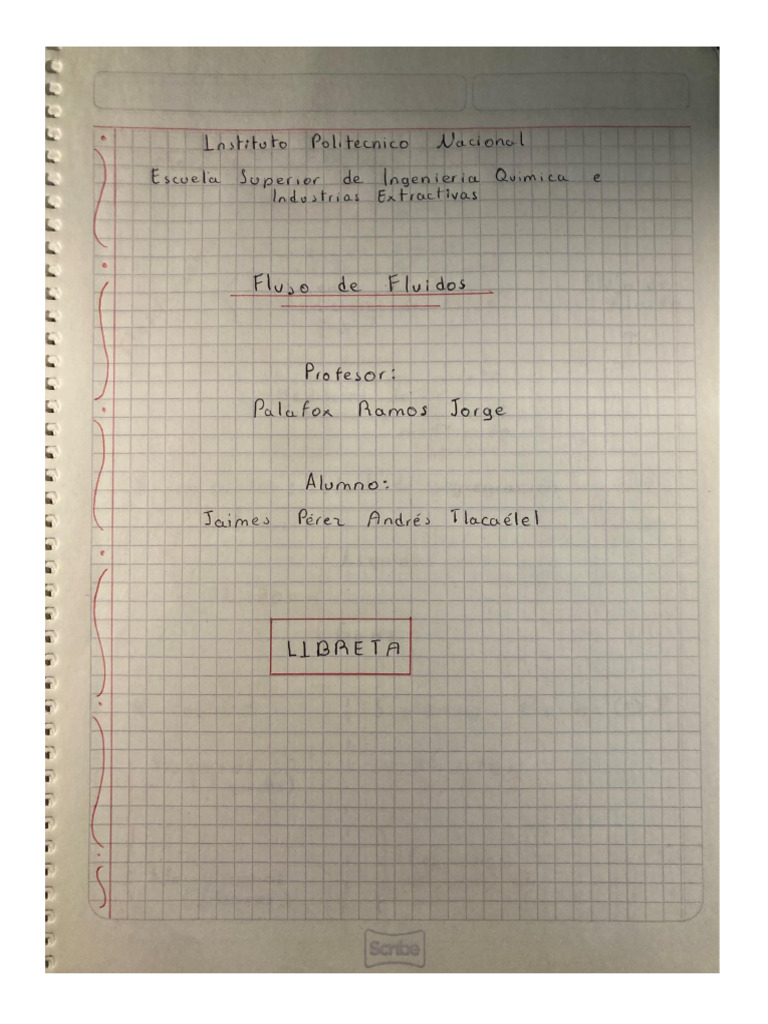 Instituto Politecnico Nacional
Escuela Superior de Ingenieria Quimica e
Industrias Extractivas
Flujo de Fluidos
Profesor:
Palafox Ramos Jorge
Alumno:
Jaimes Pérez Andrés Tlacaélel
LIBRETA
Scribe